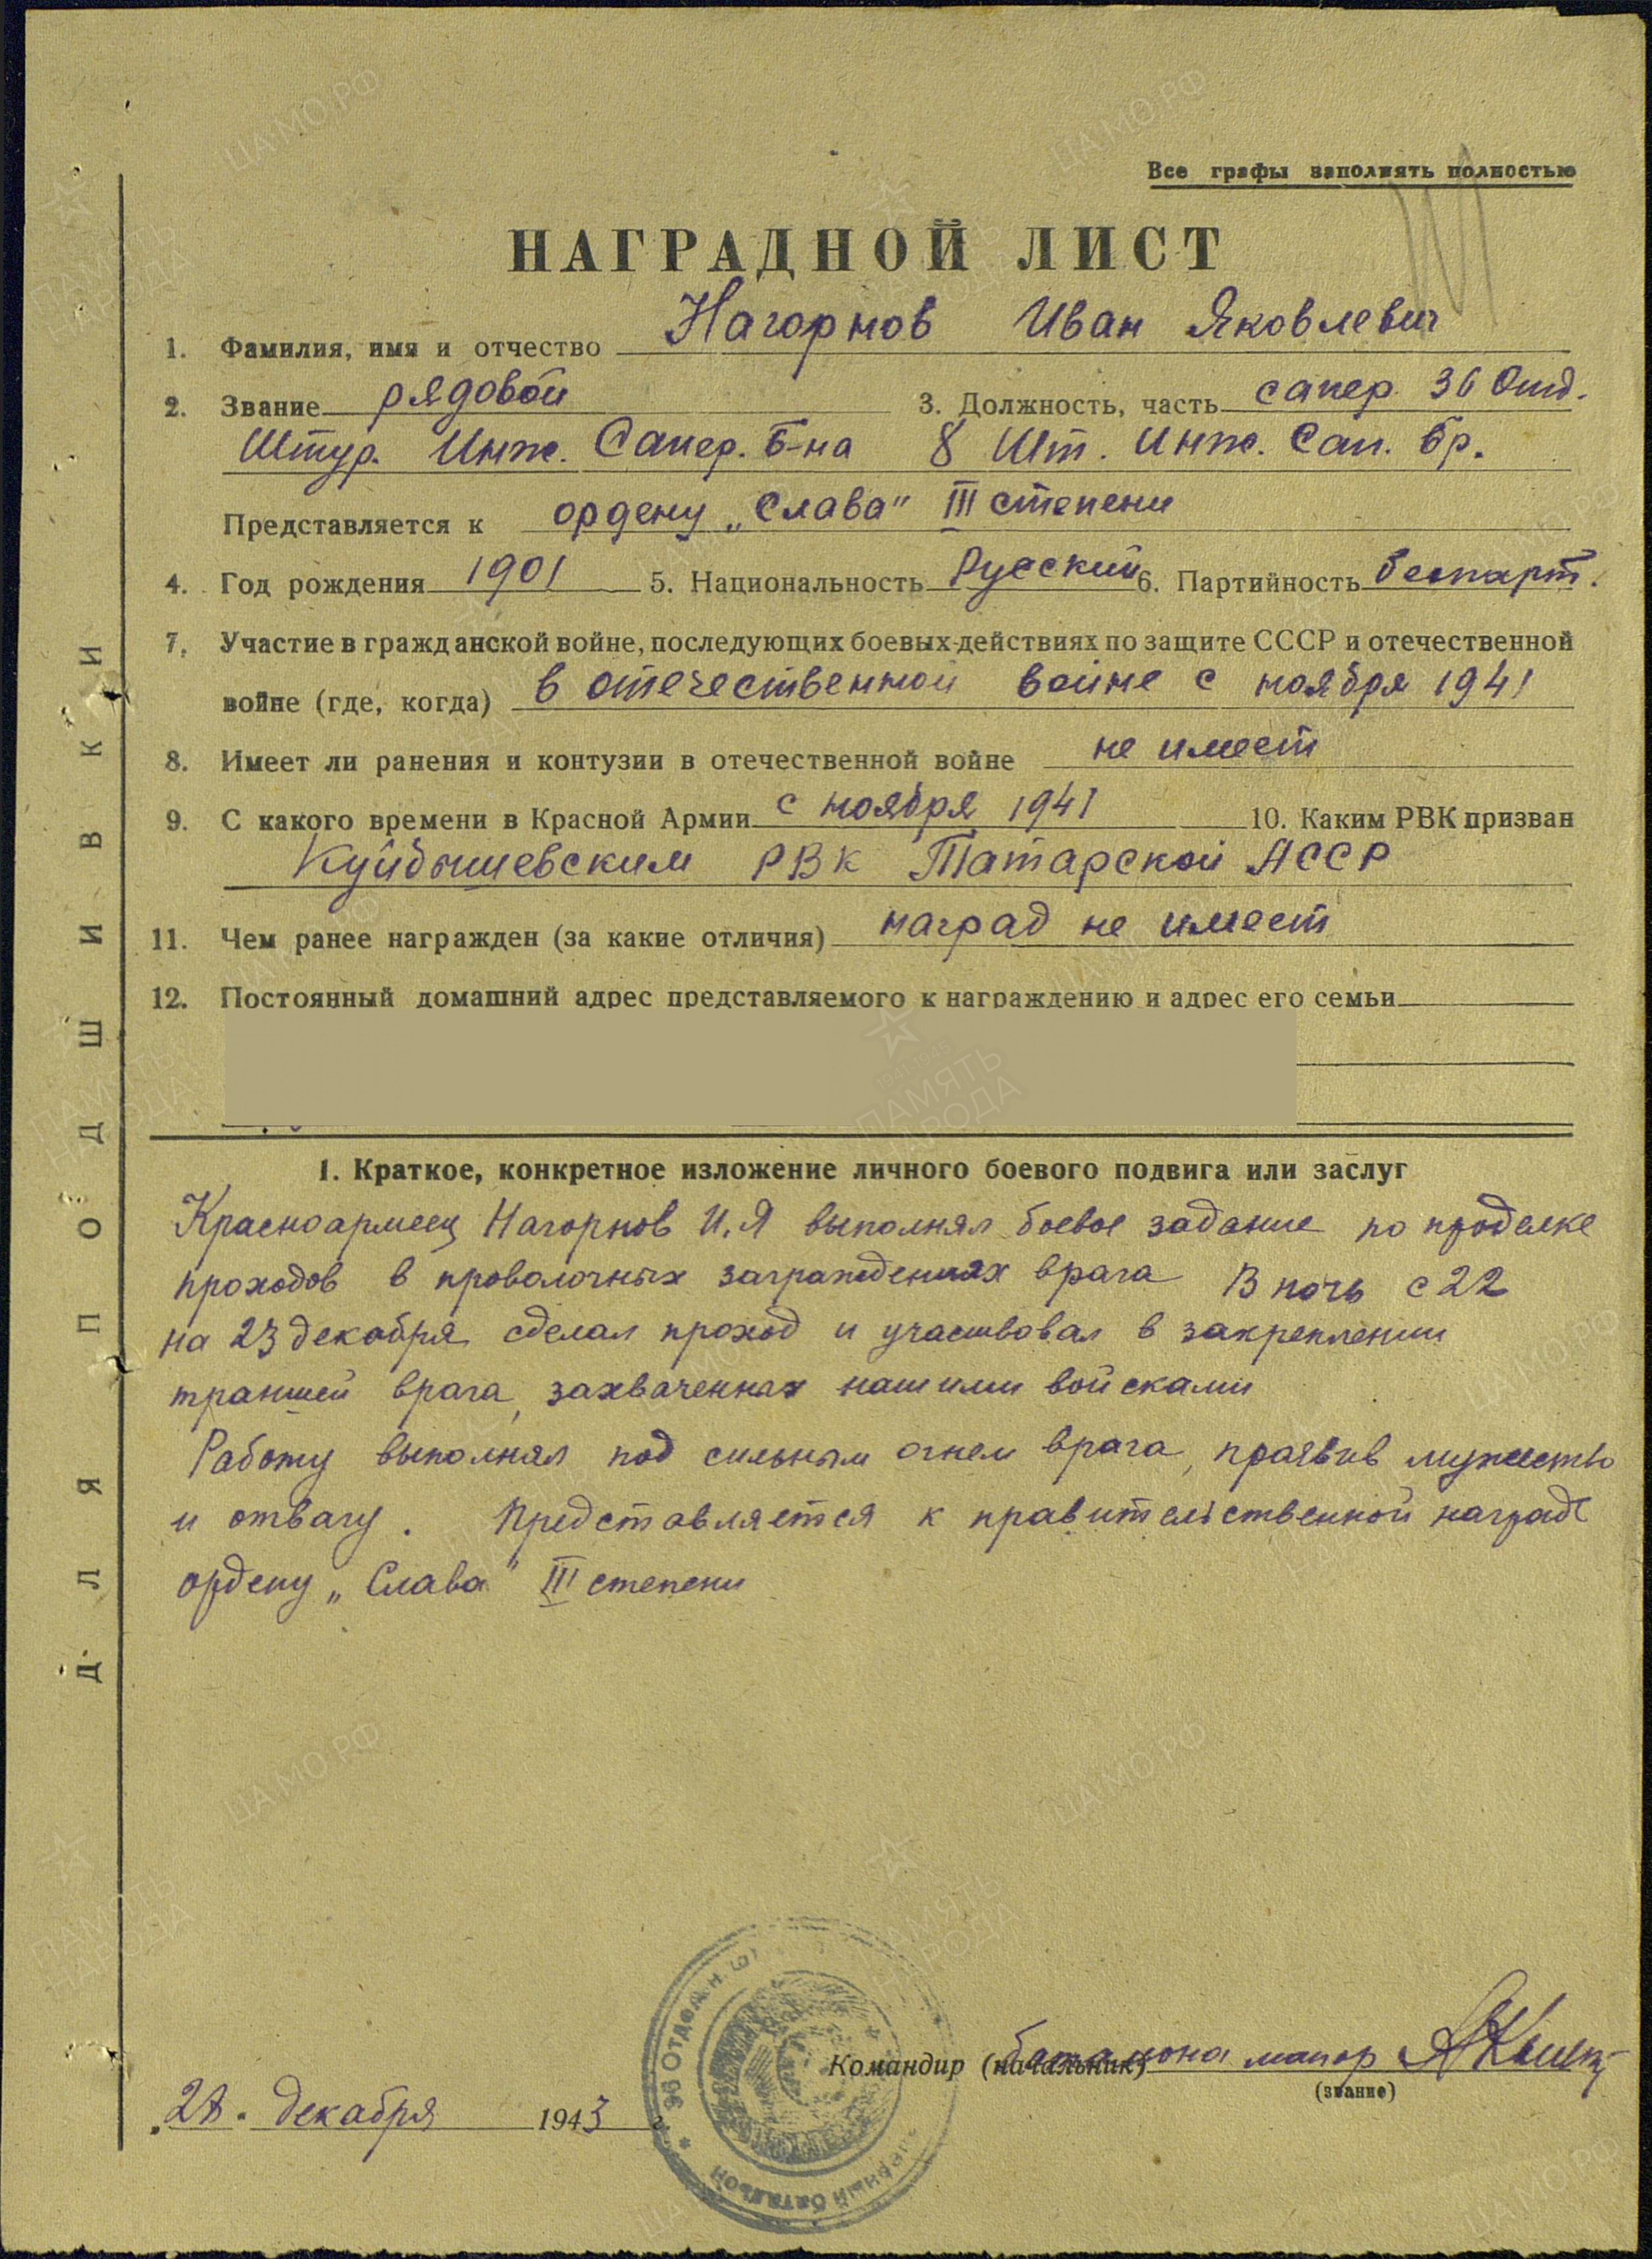 Все графы заполнять полностью
НАГРАДНОЙ ЛИСТ
1. Фамилия, имя и отчество Нагорнов Иван Яковлевич
2. Звание рядовой 3. Должность, часть сапер 36 Отд.
Штур. Инж. Сапер. Б-на 8 Шт. Инж. Сап. бр.
Представляется к ордену „Слава" III степени
4. Год рождения 1901 5. Национальность Русский 6. Партийность беспарт.
7. Участие в гражданской войне, последующих боевых действиях по защите СССР и отечественной
войне (где, когда) в отечественной войне с ноября 1941
8. Имеет ли ранения и контузии в отечественной войне не имеет
9. С какого времени в Красной Армии с ноября 1941 10. Каким РВК призван
Куйбышевским РВК Татарской АССР
11. Чем ранее награжден (за какие отличия) наград не имеет
12. Постоянный домашний адрес представляемого к награждению и адрес его семьи
1. Краткое, конкретное изложение личного боевого подвига или заслуг
Красноармеец Нагорнов И.Я выполнял боевое задание по проделке
проходов в проволочных заграждениях врага В ночь с 22
на 23 декабря сделал проход и участвовал в закреплении
траншей врага, захваченных нашими войсками
Работу выполнял под сильным огнем врага, проявив мужество
и отвагу. Представляется к правительственной награде
ордену „Слава" III степени
Командир (начальник) батальона майор
(звание)
28. декабря 1943 г.
36 ОТДЕЛЬН
БАТАЛЬОН
ДЛЯ ПОДШИВКИ
ЦАМО.РФ
ПАМЯТЬ
НАРОДА